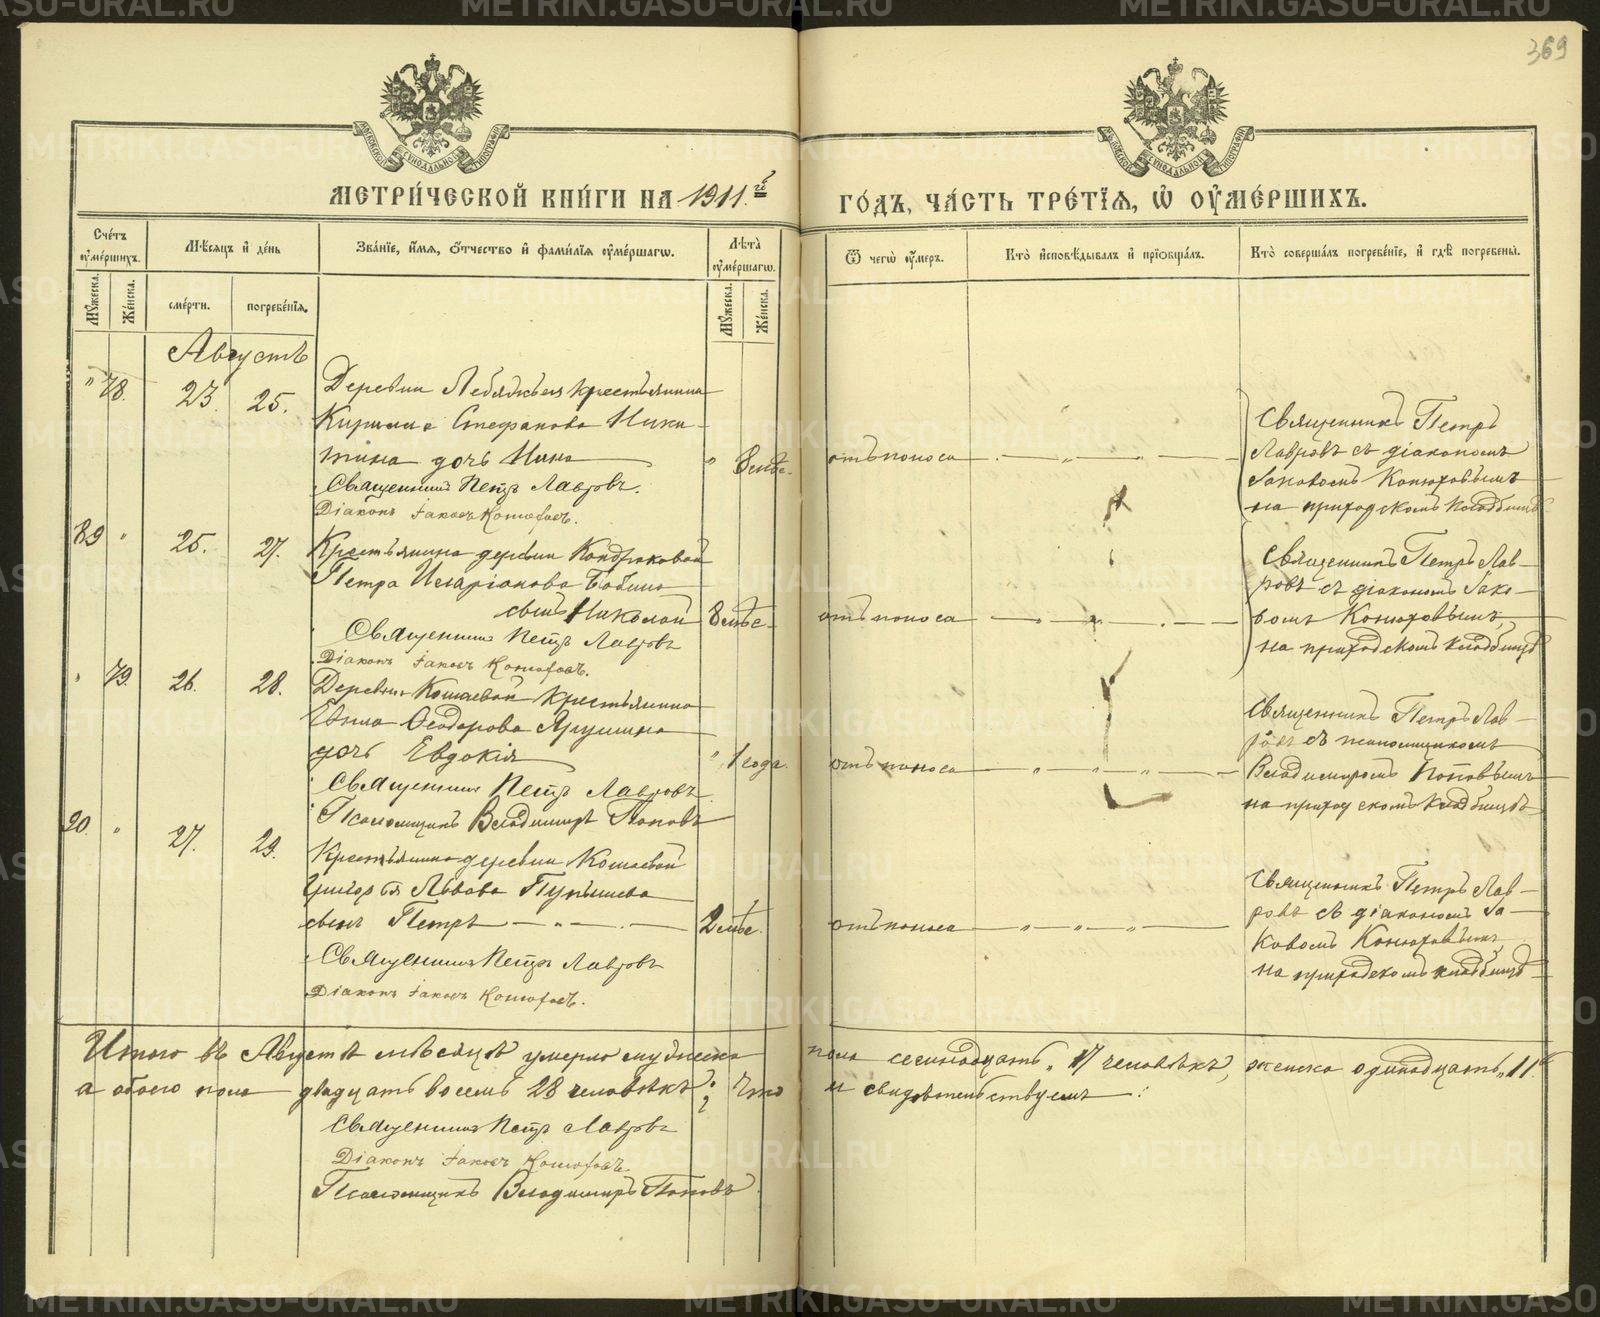 369
МЕТРИ́ЧЕСКОЙ КНИ́ГИ НА 1911.й ГО́ДЪ, ЧА́СТЬ ТРЕ́ТІѦ, Ѡ҆ ОУ҆МЕ́РШИХЪ.
Сче́тъ оу҆ме́ршихъ.
Мꙋ́жеска.
Же́нска.
Мѣ́сяцъ и҆ де́нь
сме́рти.
погребе́нїѧ.
Зва́нїе, и҆́мѧ, ѻ҆́тчество и҆ фами́лїѧ оу҆ме́ршагѡ.
Лѣ́та оу҆ме́ршагѡ.
Мꙋ́жеска.
Же́нска.
Ѿ чегѡ̀ оу҆́меръ.
Кто̀ и҆сповѣ́дывалъ и҆ прїѡбща́лъ.
Кто̀ соверша́лъ погребе́нїе, и҆ гдѣ̀ погребены̀.
Августъ
" 78. 23. 25. Деревни крестьянина
Кирилла Стефанова Ники-
тина дочь Нина " 8 мѣс. отъ поноса
Священникъ Петръ Лавровъ.
Діаконъ Іаковъ Конюховъ.
Священникъ Петръ
Лавровъ съ діакономъ
Іаковомъ Конюховымъ
на приходскомъ кладбищѣ
89 " 25. 27. Крестьянина деревни
Петра Иларіонова Бабина
сынъ Николай 8 мѣс. отъ поноса
Священникъ Петръ Лавровъ
Діаконъ Іаковъ Конюховъ.
Священникъ Петръ Лав-
ровъ съ діакономъ Іако-
вомъ Конюховымъ,
на приходскомъ кладбищѣ
" 79. 26. 28. Деревни Кошаевой крестьянина
Ѳеодорова
дочь Евдокія " 1 года. отъ поноса
Священникъ Петръ Лавровъ
Псаломщикъ Владимиръ Поповъ
Священникъ Петръ Лав-
ровъ съ псаломщикомъ
Владимиромъ Поповымъ
на приходскомъ кладбищѣ
90. " 27. 29. Крестьянина деревни Кошаевой
Григорія Львова Пупышева
сынъ Петръ 2 мѣс. отъ поноса
Священникъ Петръ Лавровъ
Діаконъ Іаковъ Конюховъ.
Священникъ Петръ Лав-
ровъ съ діакономъ Іа-
ковомъ Конюховымъ,
на приходскомъ кладбищѣ
Итого въ Августѣ мѣсяцѣ умерло мужеска пола семнадцать, 17 человѣкъ, женска одинадцать, 11
а обоего пола двадцать восемь 28 человѣкъ; Что и свидѣтельствуемъ:
Священникъ Петръ Лавровъ
Діаконъ Іаковъ Конюховъ.
Псаломщикъ Владимиръ Поповъ.
METRIKI.GASO-URAL.RU